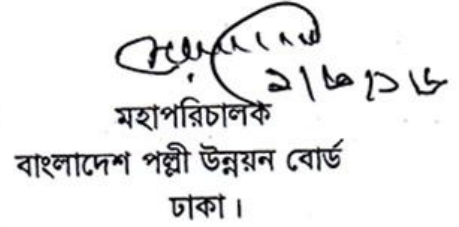 মহাপরিচালক
বাংলাদেশ পল্লী উন্নয়ন বোর্ড
ঢাকা।